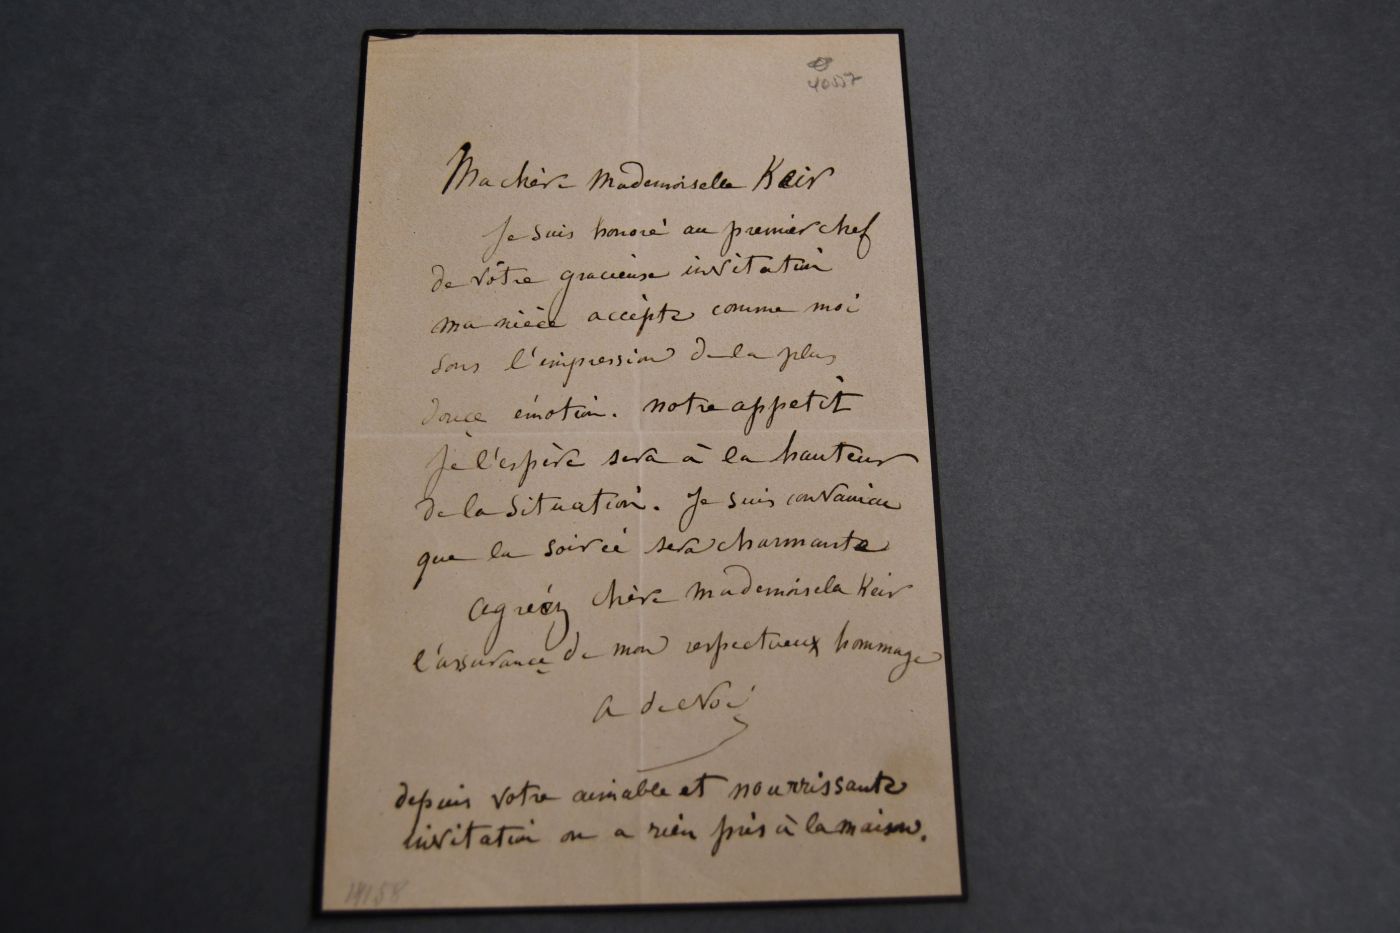 Ma chère Mademoiselle Keir
Je suis honoré au premier chef
de vôtre gracieuse invitation
ma nièce accèpte comme moi
sous l'impression de la plus
douce émotion. notre appetit
je l'espère sera à la hauteur
de la situation. Je suis convaincu
que la soirée sera charmante
Agréez chère Mademoiselle Keir
l'assurance de mon respectueux hommage
A de Noé
depuis votre aimable et nourrissante
invitation on a rien pris à la maison.